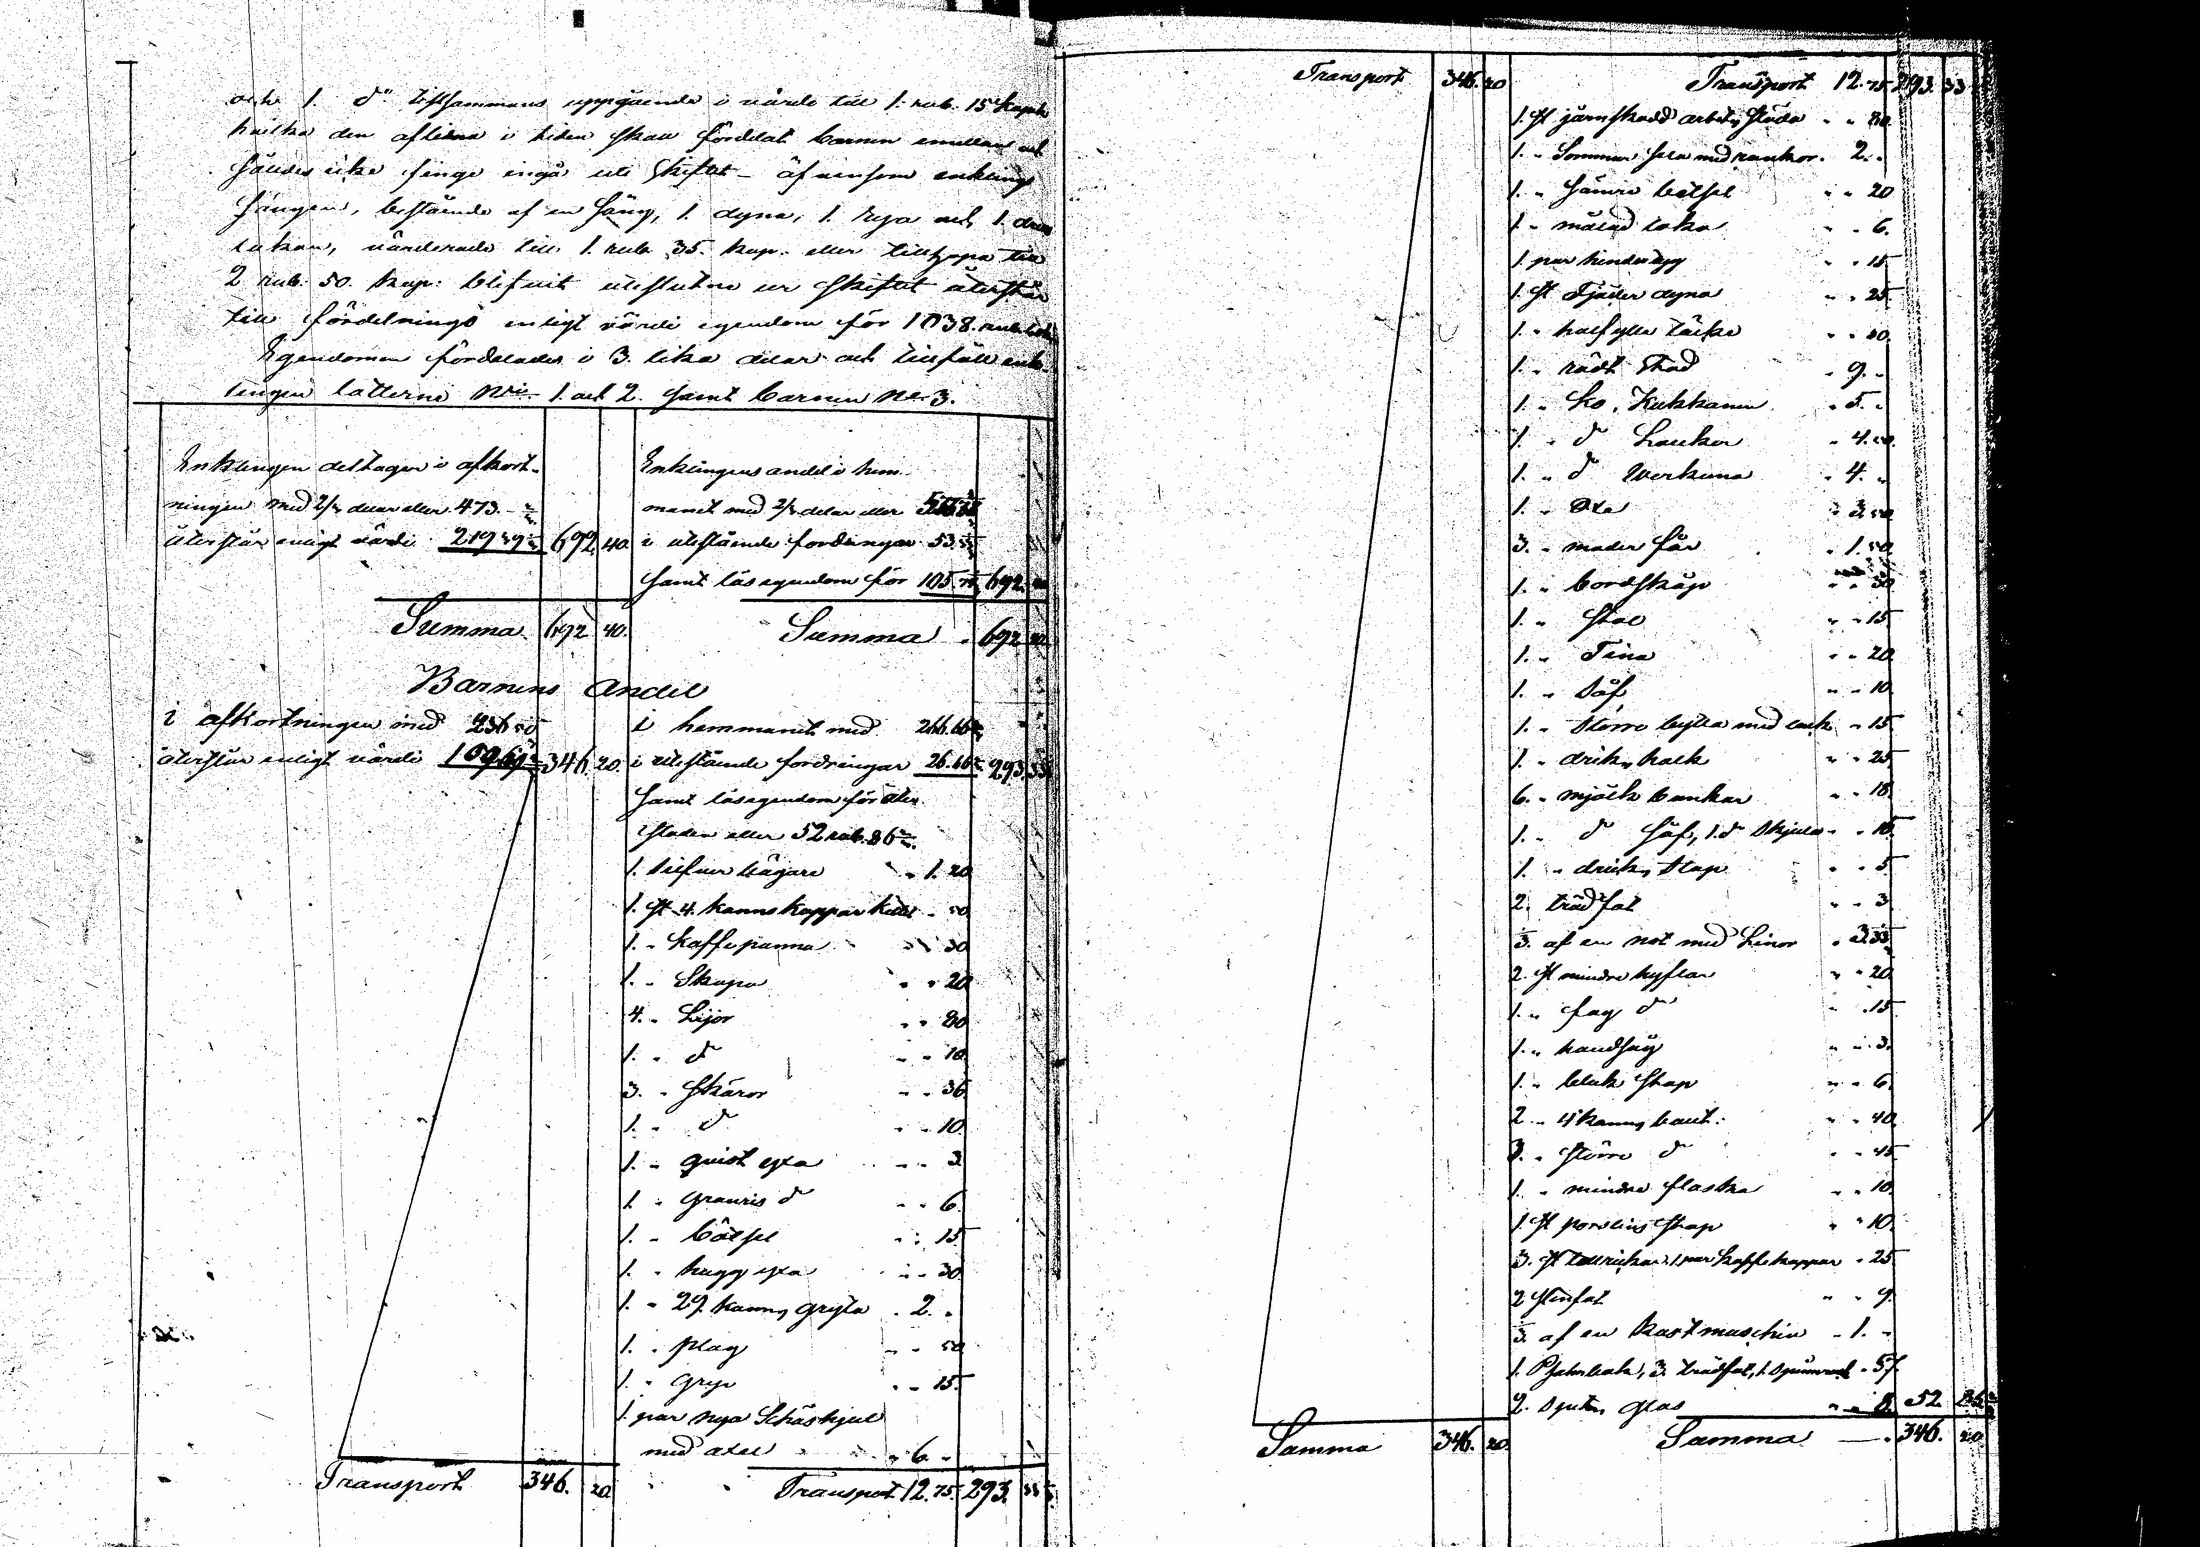 och 1. d:o tillsammans uppgående i värde till 1. rub. 15 kopek
hvilka den aflidna i tiden skall fördelat barnen emellan och
således icke finge ingå uti skiftet – äfvensom enklings
sängen, bestående af en säng, 1. dyna, 1. rya och 1.
lakan, värderade till 1. rub 35. kop. eller tillhopa till
2 rub. 50. kop: blifvit uteslutne ur skiftet återstår
till fördelnings enligt värde egendom för 1038.
Egendomen fördelades i 3. lika delar och tillföll enk-
lingen lotterne N:is 1. och 2. samt barnen N:o 3.
Enklingen deltager i afkort-
ningen med 2/3 delar eller 473. –
återstår enligt värde 219 39 692 40.
Summa 692 40.
Enklingens andel i hem-
manet med 2/3 delar eller
i utestående fordringar 53.
samt lösegendom för 105. 692.
Summa . 692
Barnens Andel
i afkortningen med 236 50
återstår enligt värde 109 69 346. 20.
i hemmanet med 266.66
i utestående fordringar 26.66 293.33
samt lösegendom för åter-
staden eller 52 rub. 86
1. silfver bägare " 1. 20
1. st 4. kanns koppar kittel " 50
1. " kaffepanna " " 30
1. " Skopa " " 20
4. " Lijor " " 80
1. " d:o " " 10.
3. " skäror " " 36
1. " d:o " " 10.
1. " qvist yxa " " 3
1. " granris d:o " " 6.
1. " bätsel " " 15
1. " hugg yxa " " 30
1. " 29. kanns gryta . 2. "
1. " plog " " 50
1. " grep " " 15.
1. par nya Schäshjul
med axel " " 6. "
Transport 346. 20
Transport 12. 75. 293. 33
Transport 346. 20
Transport 12. 75 293. 33
1. st järnskodd arbets släda " " 80.
1. " Sommar sela med rankor. 2. "
1. " sämre bätsel " " 20
1. " målad loka " " 6.
1. par hindertyg " " 15
1. st Fjäder dyna " " 25
1. " halfylle täcke " " 40.
1. " rödt Stod " 9. "
1. " Ko, Kukkanen " 5. "
1. " d:o Laukon " 4. 50.
1. " d:o Werkuna " 4. "
1. " Oxe " 3. 50
3. " moder får " 1. 50
1. " bordskåp " " 50
1. " stol " " 15
1. " Tina " " 20
1. " Såf " " 10
1. " större bytta med lock " 15
1. " dricks halk " " 25
6. " mjölk bunkar " " 18
1. " d:o såf, 1. d:o skjula " " 16
1. " dricks stop " " 5
2. trädfat " " 3
af en not med Linor " 3.33
2. st mindre hyflar " " 20
1. " fog d:o " .15
1. " handsåg " " 3.
1. " bleck stop " " 6.
2 " 4 kanns bout: " " 40
3. " större d:o " " 45
1. " mindre flaska " " 10
1. st porslins stop " " 10.
3. st tallrickar, 1. par kaffekoppar " 25
2 stenfat " " 9.
af en kastmaschin " 1. "
1. 3. trädfat, 1. " 57.
2. spets glas " " 8. 52. 86
Summa 346. 20
Summa — . 346. 20